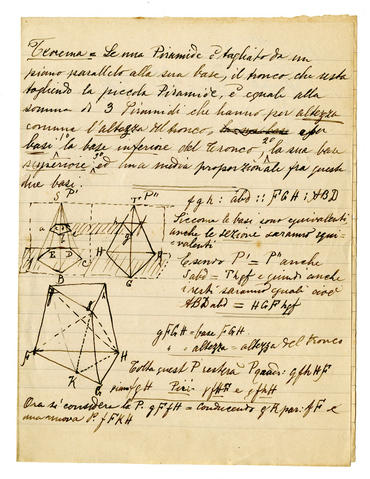 Teorema = Se una Piramide è tagliata da un
piano parallelo alla sua base, il tronco, che resta
togliendo la piccola Piramide, è eguale alla
somma di 3 Piramidi che hanno per altezza
comune l'altezza del tronco, e per
basi 1° la base inferiore del Tronco, 2° la sua base
superiore 3° ed una media proporzionale fra queste
due basi.
S P' T P''
fgh : abd :: FGH : ABD
Siccome le basi sono equivalenti
anche le sezioni saranno equi-
valenti
Essendo P' = P'' anche
Sabd = Thgf e quindi anche
i resti saranno eguali cioè
ABDabd = HGFhgf
gFGH = base FGH.
" " altezza = altezza del tronco
Tolta quest P resterà P quadr: gfhHF
Pir: gfHF e gfhH
Ora si consideri la P. gFfH = conducendo gK par: fF e
una nuova P. fFKH